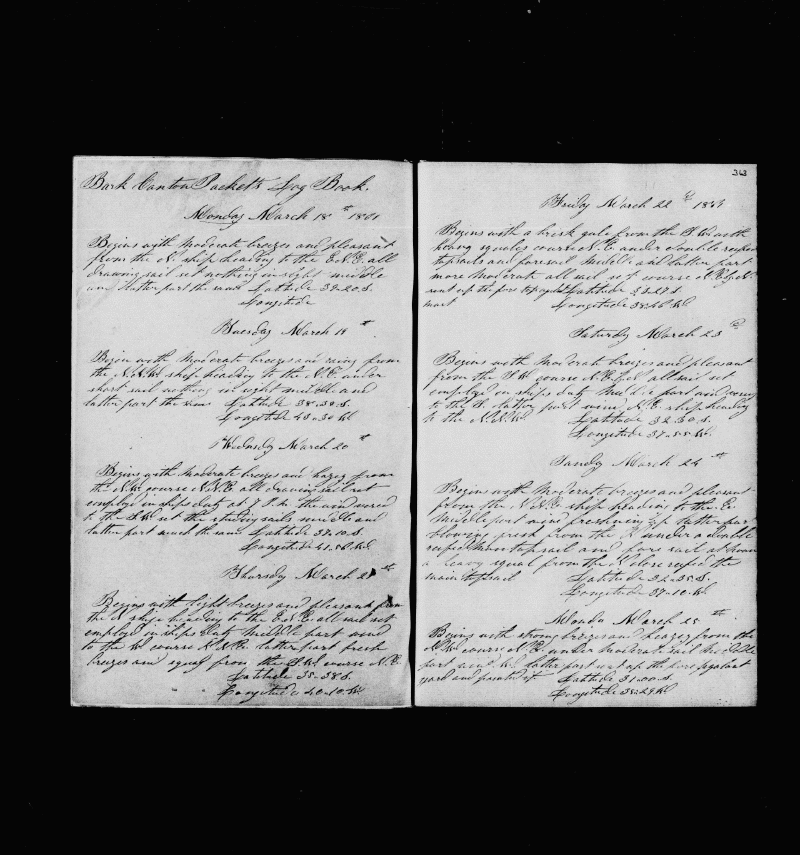 Bark Canton Packet's Log Book.
Monday March 18th 1861
Begins with Moderate breezes and pleasant
from the N. ship heading to the E.N.E. all
drawing sail set nothing in sight middle
and latter part the same Latitude 39-20.S.
Longitude
Tuesday March 19th
Begin with Moderate breezes and rainy from
the N.N.W. ship heading to the N.E. under
short sail nothing in sight middle and
latter part the same Latitude 38-38.S.
Longitude 43-30 W.
Wednesday March 20th
Begins with Moderate breezes and hazey from
the N.W. course N.N.E. all drawing sail set
employed in ships duty at 7 P.M. the wind veered
to the S.W. set the studing sails middle and
latter part much the same Latitude 37-10.S.
Longitude 41-56.W.
Thursday March 21st
Begins with light breezes and pleasant from
the N ship heading to the E.N.E. all sail set
employed in ships duty middle part wind
to the W. course N.N.E. latter part fresh
breezes and squaly from the S.W. course N.E.
Latitude 35-38 S.
Longitude 40-10 W.
363
Friday March 22d 1861
Begins with a brisk gale from the S.W. with
heavy squales course N.E. under double reefed
topsails and foresail Middle and latter part
more Moderate all sail set course N.E.
sent up the fore topgallant Latitude 33-27 S.
mast Longitude 38-46 W.
Saturday March 23d
Begins with Moderate breezes and pleasant
from the S.W. course all sail set
employed in ships duty Middle part wind
to the latter part wind N.E. ship heading
to the N.N.W. Latitude 32-30.S.
Longitude 37-55 W.
Sunday March 24th
Begins with Moderate breezes and pleasant
from the ship heading to the E.
Middle part wind freshning up latter part
blowing fresh from the N under a double
reefed Main topsail and fore sail at
a heavy squal from the N close reefed the
main topsail Latitude 32-35 S.
Longitude 37-10.W.
Monda March 25th
Begins with strong breezes and hazey from the
N.W. course N.E. under moderate sail Middle
part wind W. latter part sent up the fore topgalant
yard and pointed it. Latitude 31-00.S.
Longitude 35-29 W